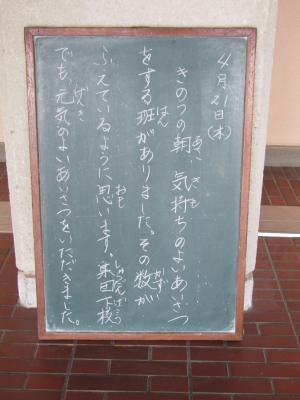 4月21日(木)
きのうの朝、気持ちのよいあいさつ
をする班がありました。その数が
ふえているように思います。集団下校
でも、元気のよいあいさつをいただきました。